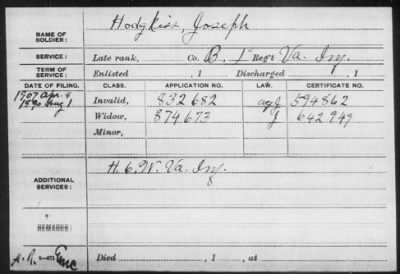 NAME OF SOLDIER: Hodgkiss, Joseph
SERVICE: Late rank, Co. B, 1 Reg't Va. Inf.
TERM OF SERVICE: Enlisted , 1 Discharged , 1
DATE OF FILING. CLASS. APPLICATION NO. LAW. CERTIFICATE NO.
1890 Aug 1 Invalid, 832682 594862
1907 Apr. Widow, 874673 642949
Minor,
ADDITIONAL SERVICES: Va. Inf.
REMARKS:
Died , 1 , at